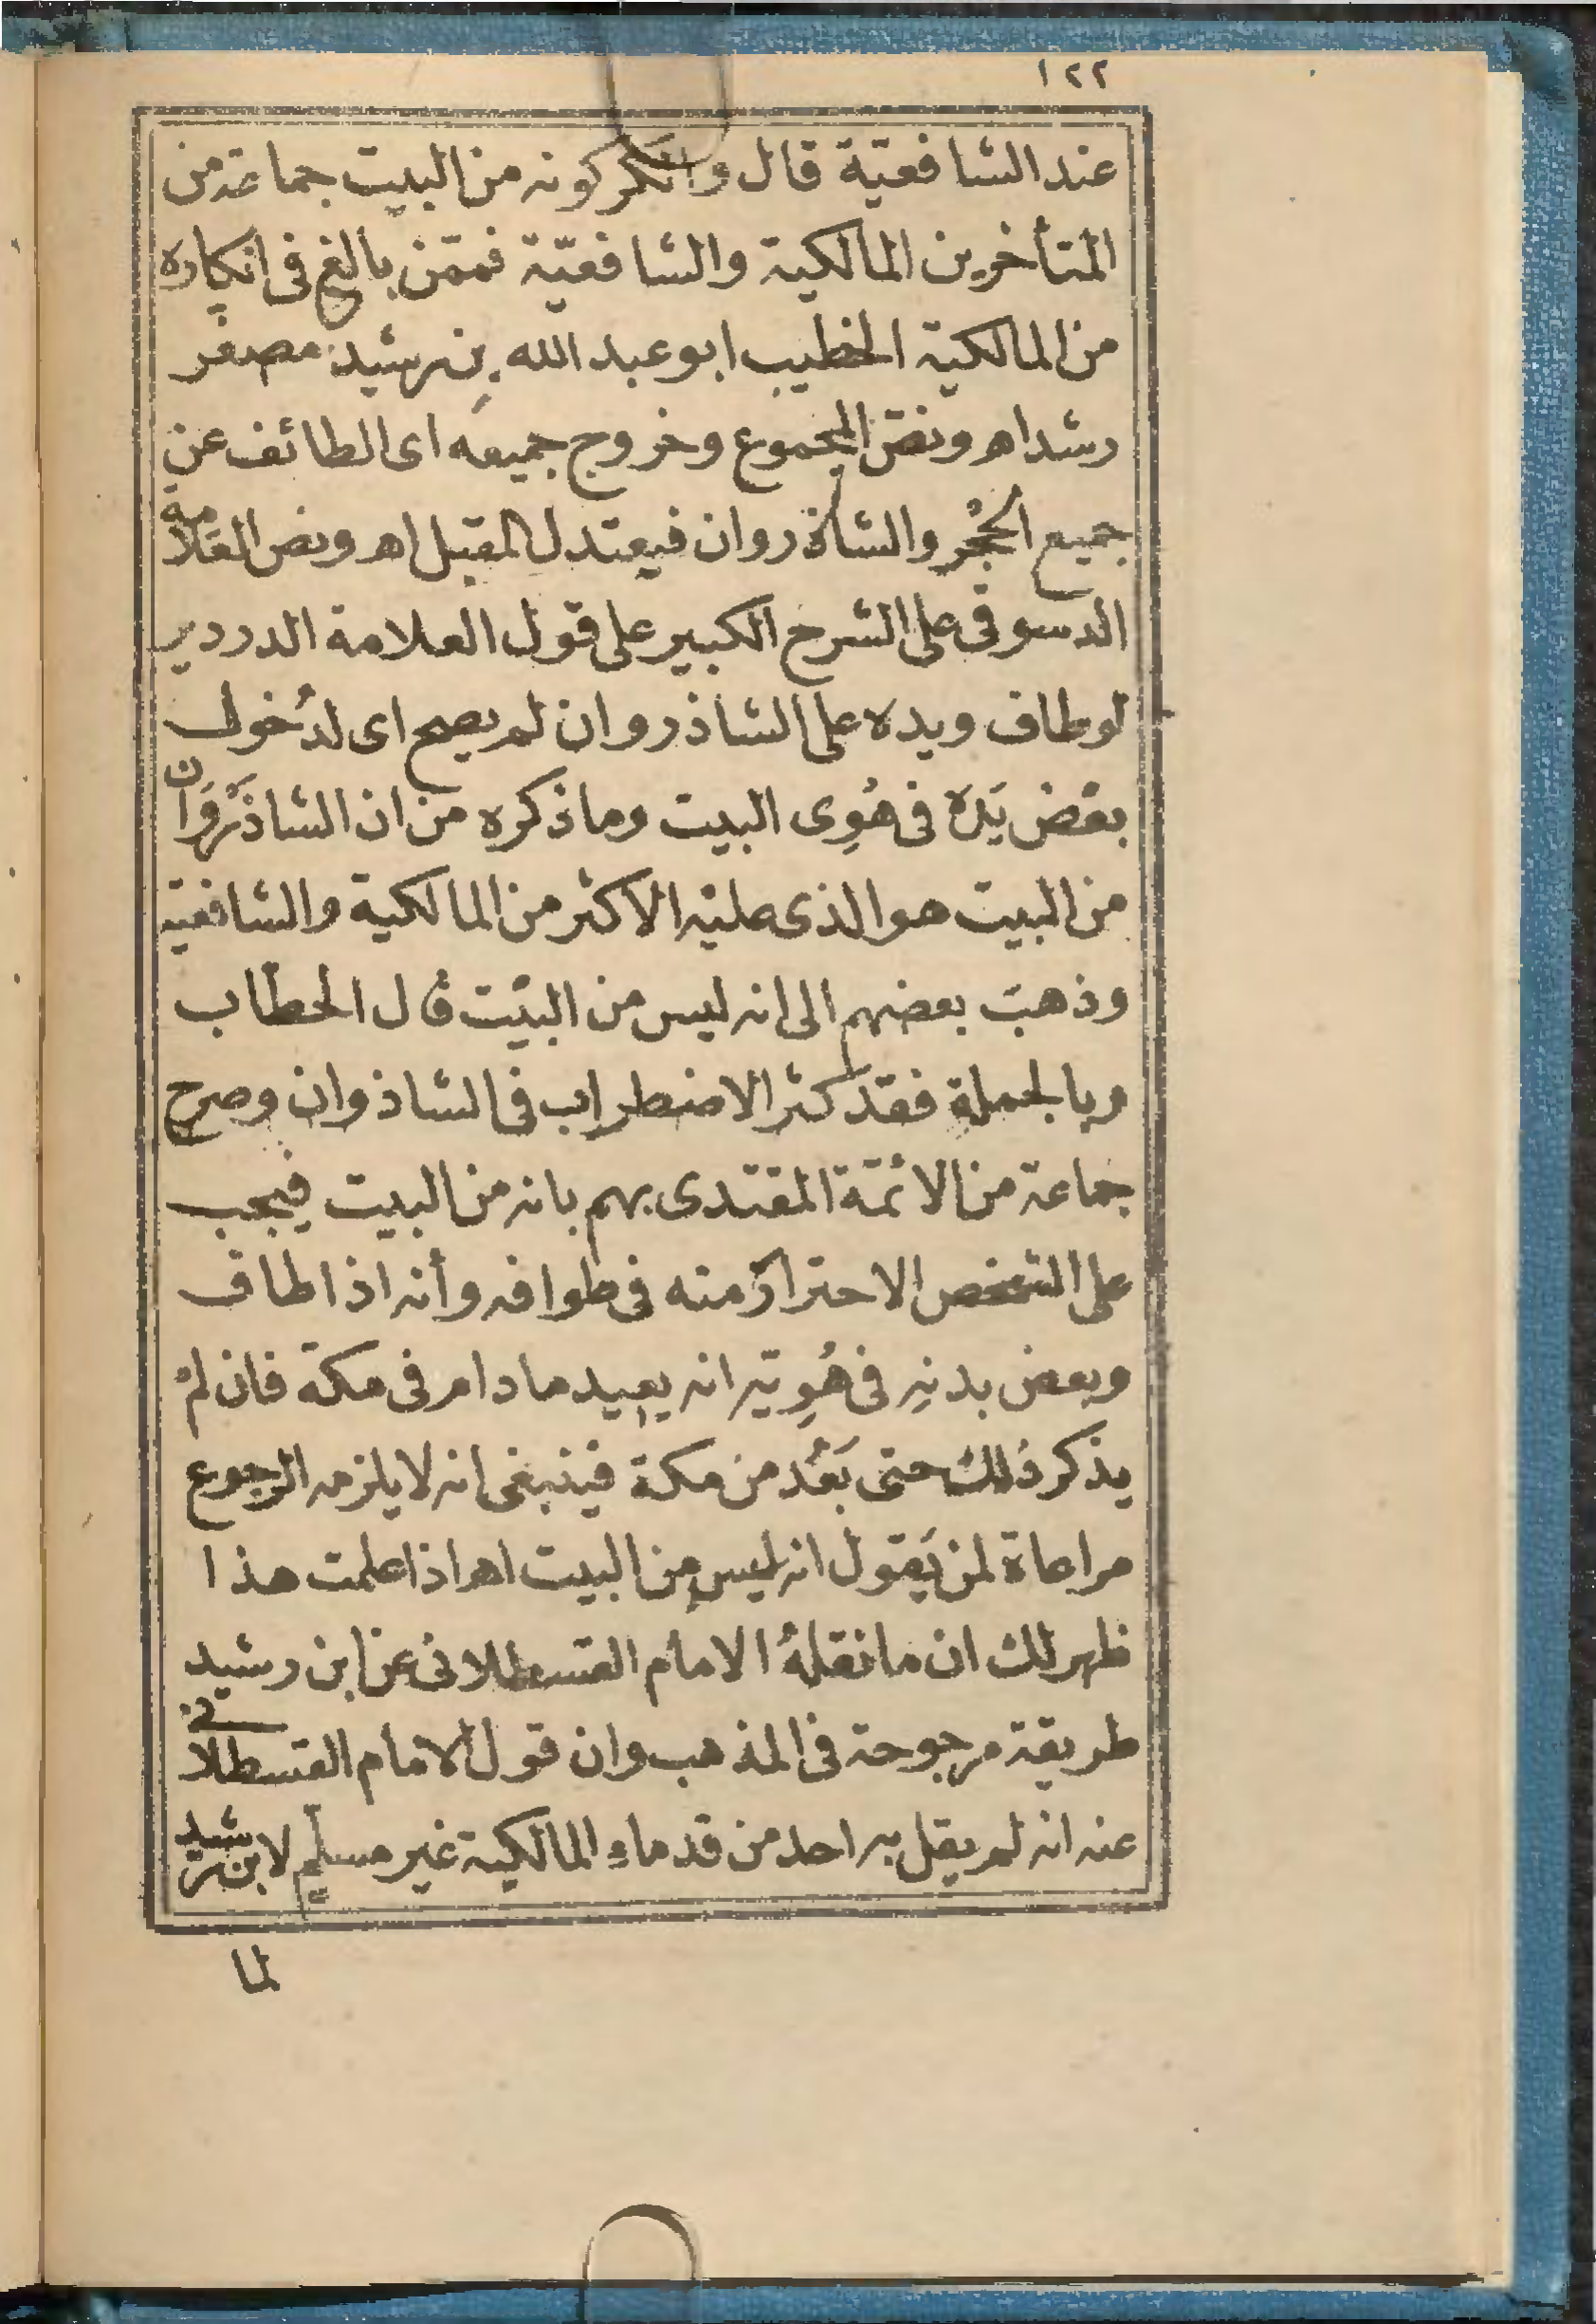 ١٢٢
عند الشافعيّة قال وانكر كونه من البيت جماعة من
المتأخرين المالكية والشافعيّة فممّن بالغ فى انكاره
من المالكية الخطيب ابو عبد الله بن رشيد مصغر
رشد اهـ ونصّ المجموع وخروج جميعه اى الطائف عن
جميع الحِجْر والشاذروان فيعتدل المقبل اهـ ونص العلامة
الدسوقى على الشرح الكبير على قول العلامة الدردير
لو طاف ويده على الشاذروان لم يصح اى لدُخول
بعْض يَدَه فى هُوِى البيت وما ذكره من ان الشاذَرْوَان
من البيت هو الذى عليْه الاكثر من المالكية والشافعية
وذهبَ بعضهم الى انه ليس من البيْت قال الحطّاب
وبالجملةِ فقد كثر الاضطراب فى الشاذوان وصرح
جماعة من الائمّة المقتدى بهم بانه من البيت فيجب
على الشخص الاحتراز منه فى طوافه وأنه اذا طاف
وبعض بدنِه فى هُوِيّه انه يعيد ما دام فى مكة فان لمْ
يذكر ذلك حتى بَعُد من مكة فينبغى انه لا يلزمه الرجوع
مراعاة لمن يَقول انه ليس من البيت اهـ اذا علمت هذا
ظهر لك ان ما نقلهُ الامام القسطلانى عن ابن رشيد
طريقة مرجوحة فى المذهب وان قول الامام القسطلانى
عنه انه لم يقل به احد من قدماءِ المالكية غير مسلّم لابن رشيد
لما